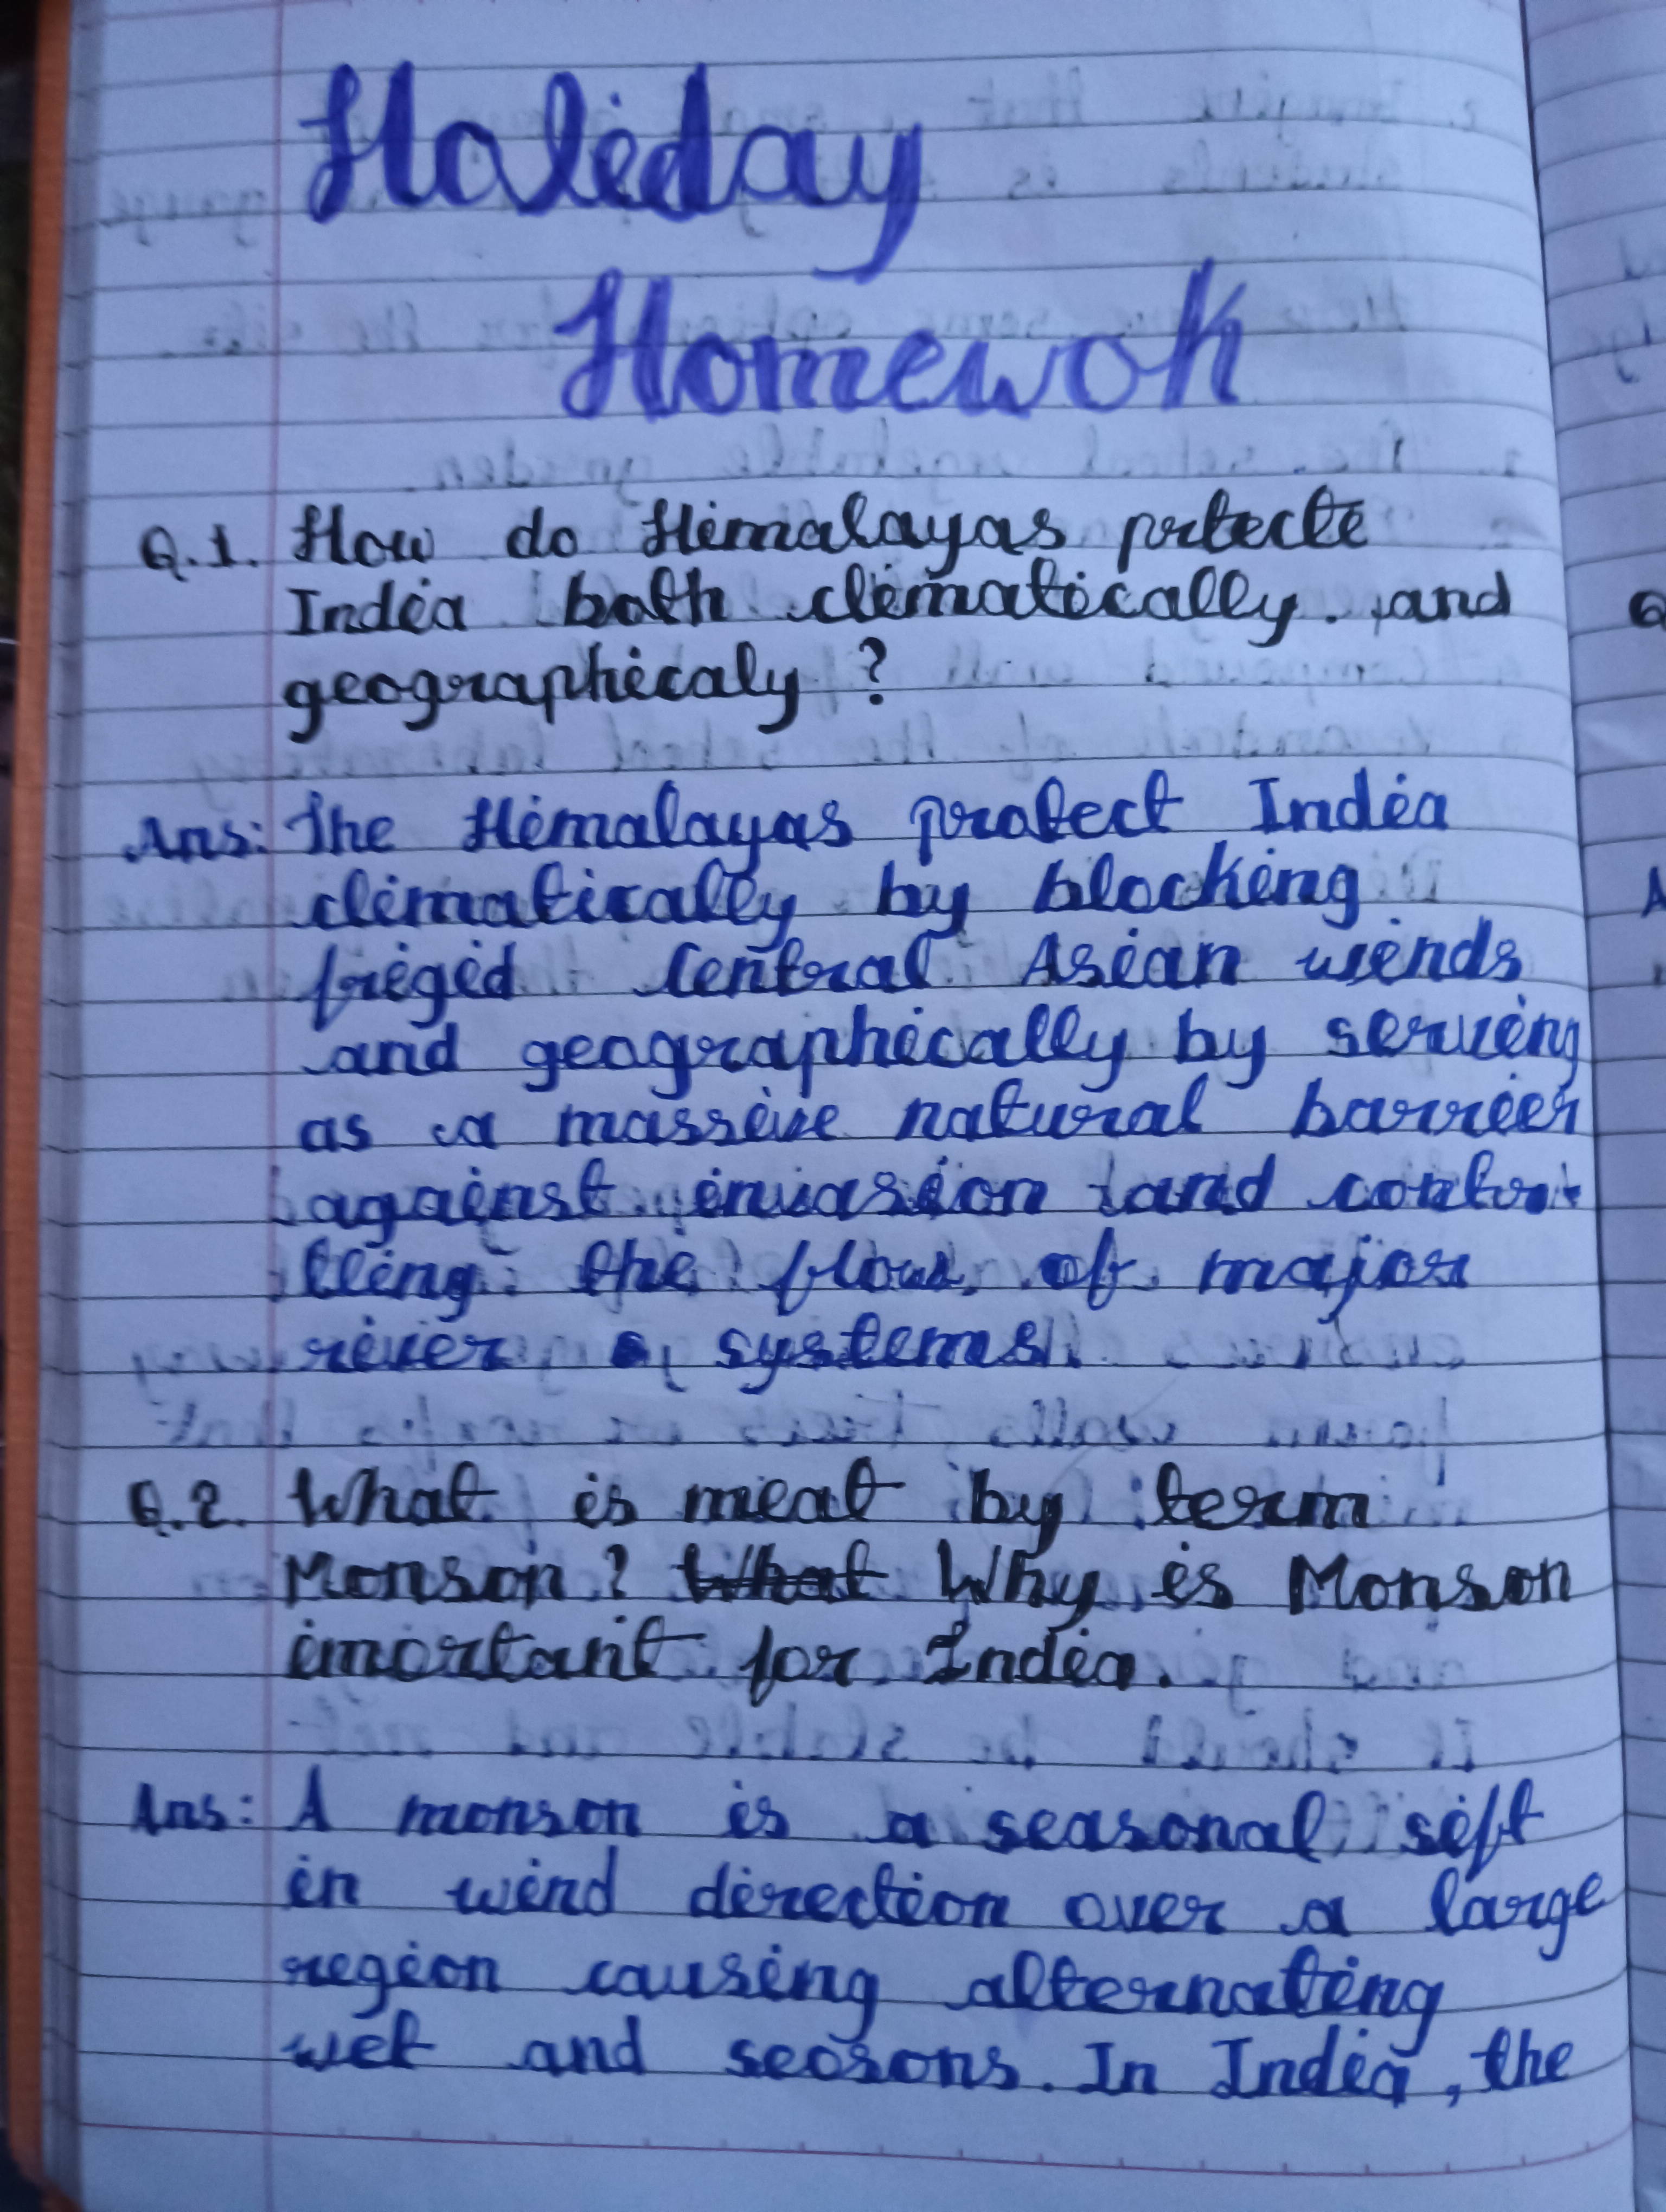 Holiday
Homewok
Q.1. How do Himalayas prtecte
India both climatically and
geographicaly ?
Ans: The Himalayas protect India
climatically by blocking
frigid Central Asian winds
and geographically by serving
as a massive natural barrier
against invasion and control
lling the flow of major
river systems.
Q.2. What is meat by term
Monson ? What Why is Monson
imortant for India.
Ans: A monson is a seasonal sift
in wind direction over a large
region causing alternating
wet and seosons. In India, the